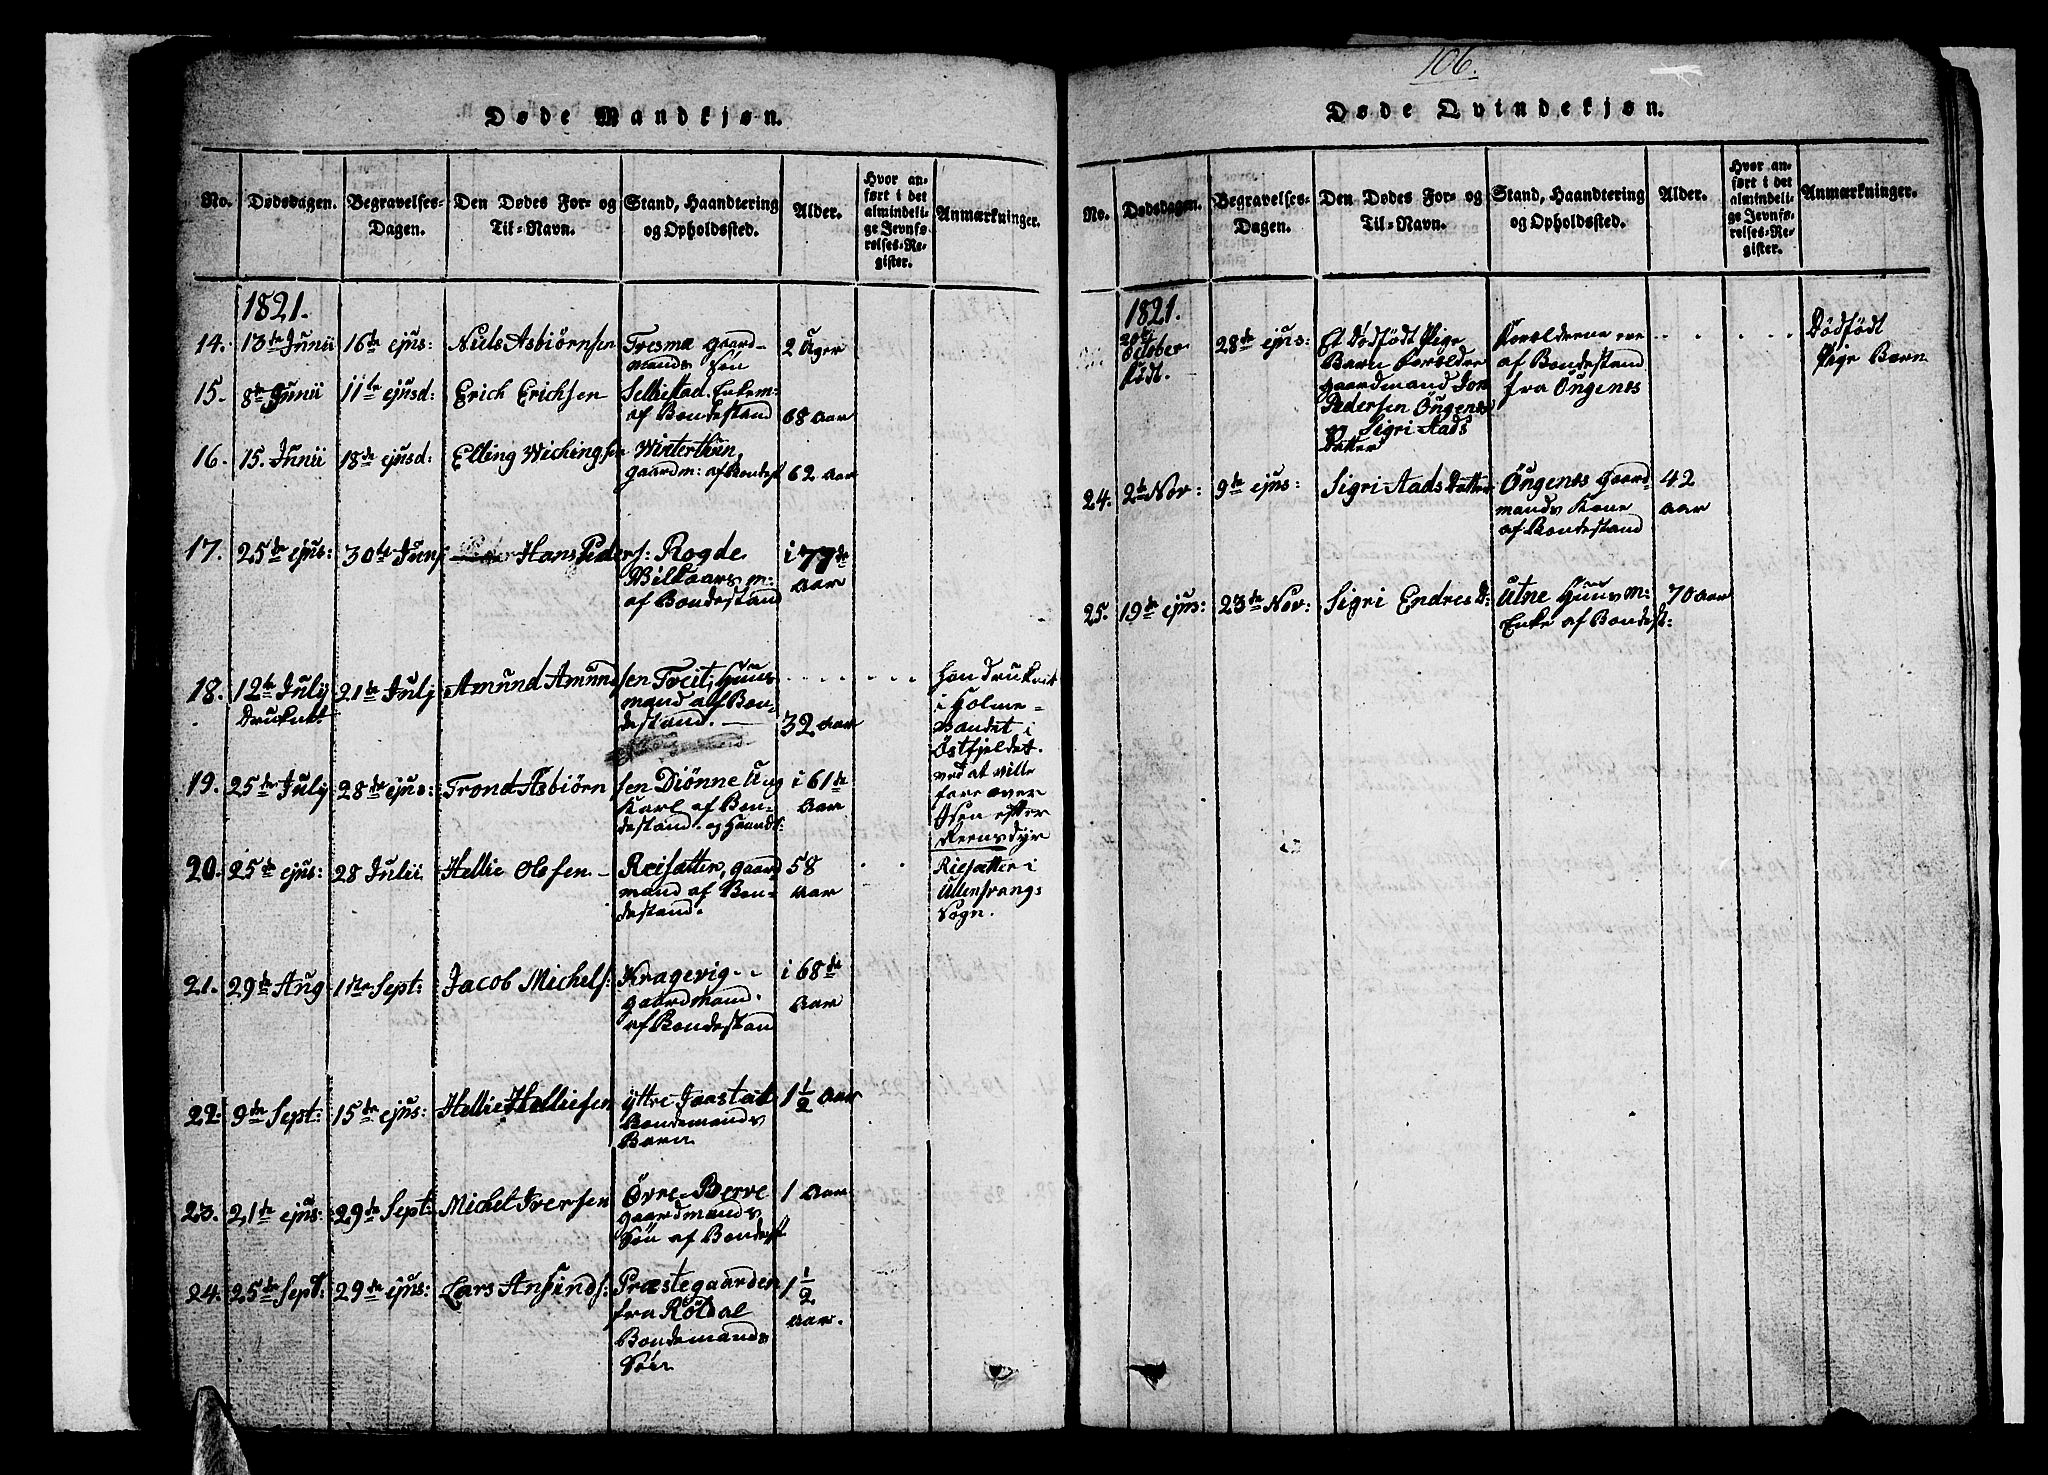 106.
Døde Mandkjøn.
No. Dødsdagen. Begravelses-Dagen. Den Dødes For- og Til-Navn. Stand, Haandtering og Opholdssted. Alder. Hvor anført i det almindelige Jevnførelses-Register. Anmærkninger.
1821.
14. 13de Junii 16de ejus: Niels Asbiörnsen Tresmæ gaard-
mands Sön 2 Uger
15. 8de Junii 11te ejusd: Erich Erichsen Sellestad. Enkem:
af Bondestand 68 Aar
16. 15. Junii 18de ejusd: Elling Wichingsen Winterthun,
gaardm: af Bondest 62 Aar
17. 25de ejus: 30te Junj Hans Peders: Rogde
Wilkaars m:
af Bondestand i 77de
Aar
18. 12te Julij 21de Julj Amund Amundsen Freit, Huus-
Druknet
mand af Bon-
destand. 32 Aar
han druknet
i Holme-
Vandet i
Östfjeldet.
ved at ville
fare over
Isen efter
Reensdyr
19. 25de Julij 28de ejus: Trond Asbiörnsen Diönne Ung
Karl af Bon-
destand. og Haandt: i 61de
Aar
20. 25de ejus: 28 Julii Hellie Olsen Reisæter, gaard
mand af Bon-
destand. 58
Aar
Riesæter i
Ullensvangs
Sogn.
21. 29de Aug 1ste Sept: Jacob Michels: Kragevig
gaardmand.
af Bondestand i 68de
Aar
22. 9de Sept: 15de ejus: Hellie Helliesen Yttre Jaastad
Bondemands
Barn 1 1/2 Aar
23. 21de ejus: 29de Sept: Michel Iversen Övre Berve
gaardmands
Sön af Bondest 1 Aar
24. 25de Sept: 29de ejus: Lars Ansinds: Præstegaarden
fra Röldal
Bondemands
Sön 1 1/2
Aar.
Døde Qvindekjøn.
No. Dødsdagen. Begravelses-Dagen. Den Dødes For- og Til-Navn. Stand, Haandtering og Opholdssted. Alder. Hvor anført i det almindelige Jevnførelses-Register. Anmærkninger.
1821.
October
födt. 28de ejus: Et Dödfödt Pige
Barn Forældre
gaardmand
Pedersen Öugenes
og Sigri Aads
Datter
Forælderne ere
af Bondestand
fra Öugenes
Dödfödt
Pige Barn
24. 2de Nov: 9de ejus: Sigri Aads Datter Öugenes gaard-
mands Kone
af Bondestand 42
Aar
25. 19de ejus: 23de Nov: Sigri Endres D: Utne Huus m:
Enke af Bondest: 70 Aar